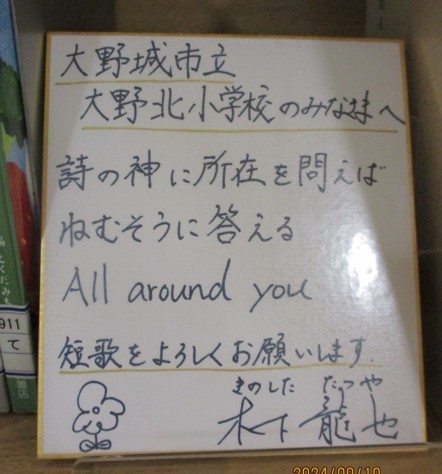 大野城市立
大野北小学校のみなさまへ
詩の神に所在を問えば
ねむそうに答える
All around you
短歌をよろしくお願いします。
きのした たつや
木下龍也
911
て
2024/09/10